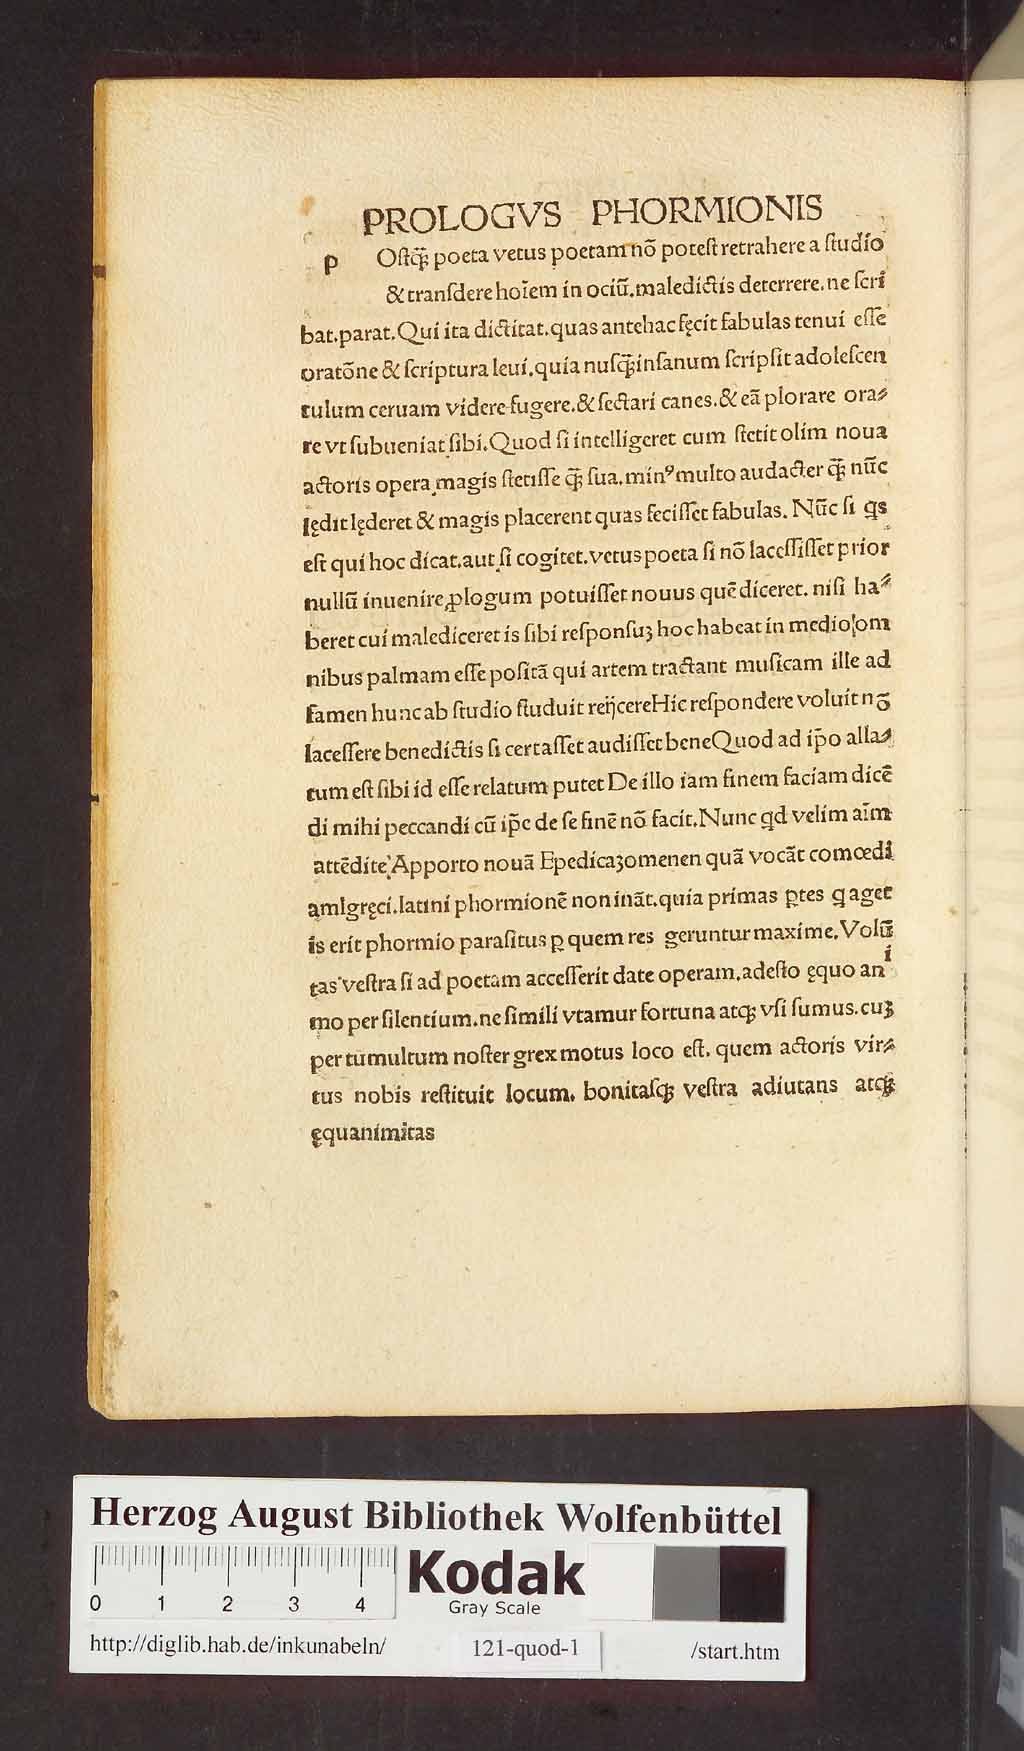 PROLOGVS PHORMIONIS
P Oſtꝙ̃ poeta vetus poetam nõ poteſt retrahere a ſtudio
& tranſdere hoı̃em in ociũ. maledictis deterrere. ne ſcri
bat. parat. Qui ita dictitat. quas antehac fęcit fabulas tenui eſſe
oratõne & ſcriptura leui. quia nuſꝙ̃ inſanum ſcripſit adoleſcen
tulum ceruam videre fugere. & ſectari canes. & eã plorare ora⸗
re vt ſubueniat ſibi. Quod ſi intelligeret cum ſtetit olim noua
actoris opera magis ſtetiſſe ꝙ̃ ſua. minꝰ multo audacter ꝙ̃ nũc
lędit lęderet & magis placerent quas feciſſet fabulas. Nũc ſi qs
eſt qui hoc dicat. aut ſi cogitet. vetus poeta ſi nõ laceſſiſſet prior
nullũ inuenire ꝓlogum potuiſſet nouus quẽ diceret. niſi ha⸗
beret cui malediceret is ſibi reſponſuꝫ hoc habeat in medio om
nibus palmam eſſe poſitã qui artem tractant muſicam ille ad
famen hunc ab ſtudio ſtuduit reijcere Hic reſpondere voluit nõ
laceſſere benedictis ſi certaſſet audiſſet bene Quod ad ip̃o alla⸗
tum eſt ſibi id eſſe relatum putet De illo iam finem faciam dicẽ
di mihi peccandi cũ ip̃e de ſe finẽ nõ facit. Nunc qd velim aı̃m
attẽdite Apporto nouã Epedicaꝫomenen quã vocãt comœdi
am Igręci. latini phormionẽ nominãt. quia primas ꝑtes q aget
is erit phormio paraſitus ꝑ quem res geruntur maxime. Volũ
tas veſtra ſi ad poetam acceſſerit date operam. adeſto ęquo an i
mo per ſilentium. ne ſimili vtamur fortuna atqꝫ vſi ſumus. cuꝫ
per tumultum noſter grex motus loco eſt. quem actoris vir⸗
tus nobis reſtituit locum. bonitaſqꝫ veſtra adiutans atqꝫ
ęquanimitas
Herzog August Bibliothek Wolfenbüttel
0 1 2 3 4
Kodak
Gray Scale
http://diglib.hab.de/inkunabeln/ 121-quod-1 /start.htm